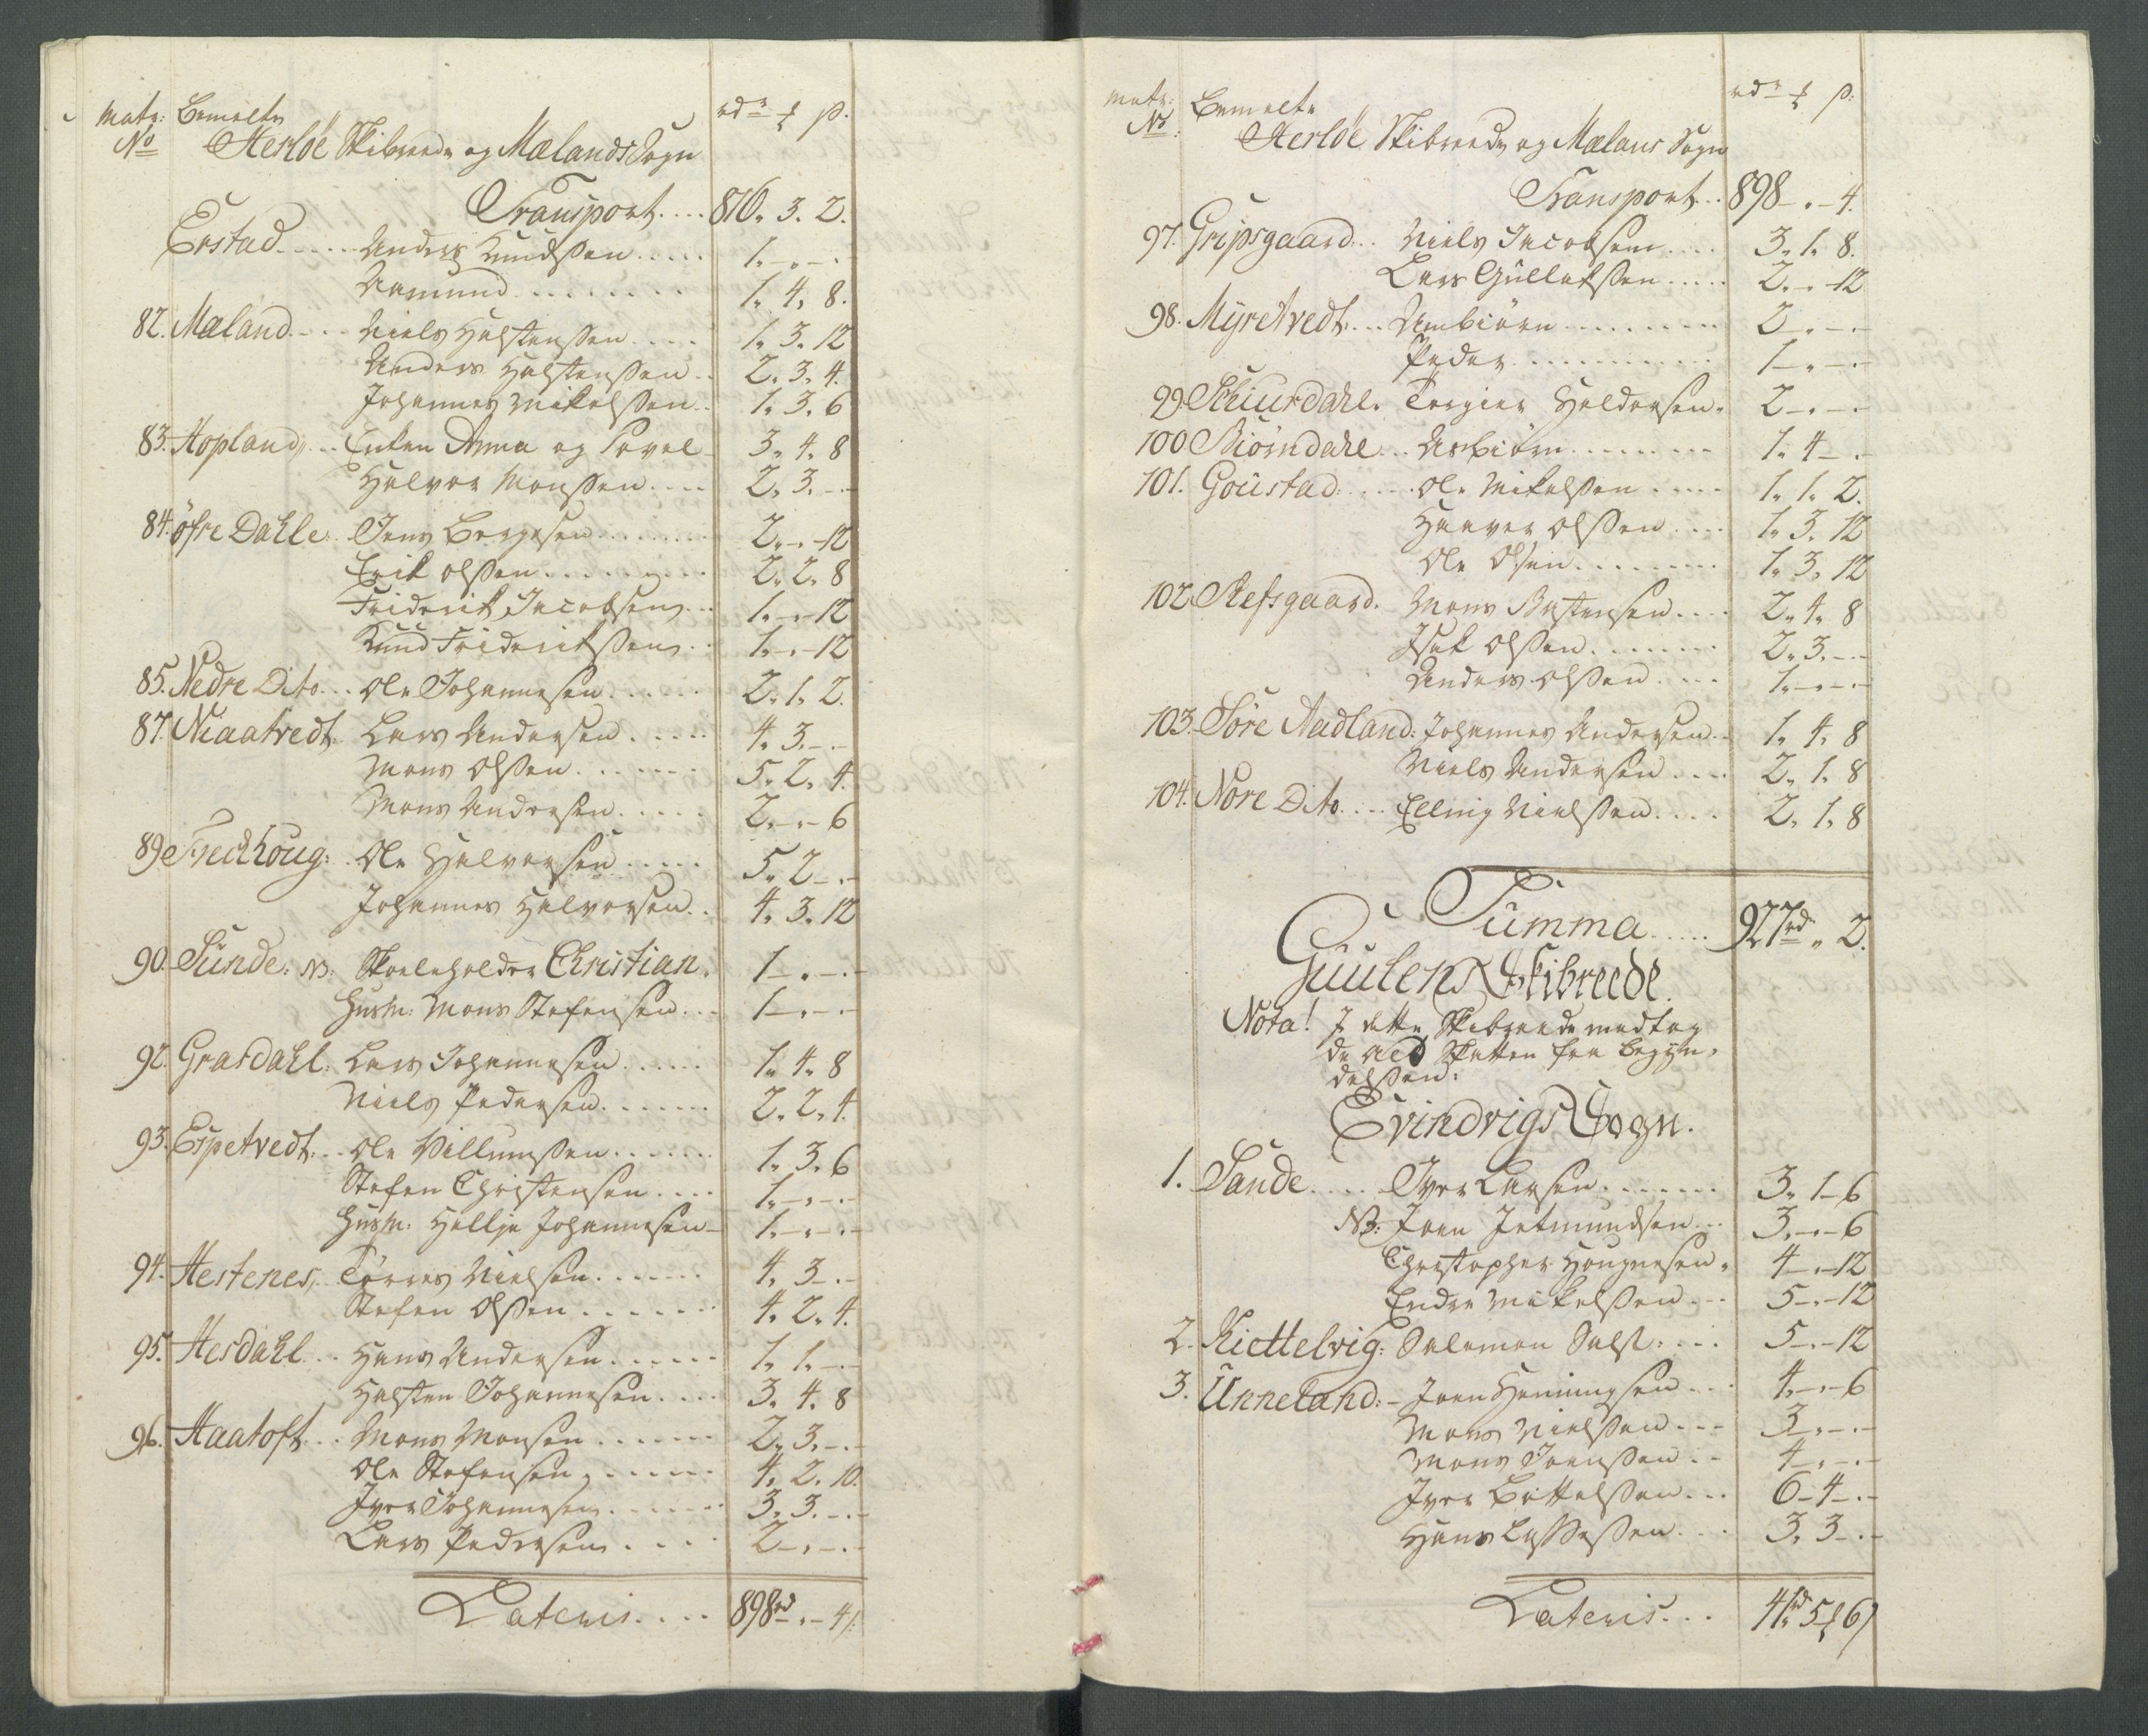 Matr: Bemelte rdr ƶ ß.
No Herlöe Skibreede og Mælands Sogn
Transport .... 816. 3. 2.
Erstad .... Anders Knudssen ..... 1. - . - .
Aamund ........ 1. 4. 8.
82. Mæland .... Niels Halstenssen .... 1. 3. 12
Anders Halstenssen .. 2. 3. 4.
Johannes Mikelssen .. 1. 3. 6
83. Hopland .. Enken Anna og Povel 3. 4. 8
Halvor Monssen .... 2. 3. - . -
84. öfre Dahle .. Jens Bergesen ....... 2. - . - 12
Erik Olssen ........ 2. 2. 8
Friderik Jacobsen ... 1. - . - 12
Knud Frideriksen .. 1. - . - 12
85. Nedre Dito ... Ole Johannesen ...... 2. 1. 2.
87. Niaatvedt Lars Andersen ..... 4. 3. - . -
Mons Olssen ....... 5. 2. 4.
Mons Andersen ..... 2. - . - 6
89 Fredhoug: .. Ole Halvorsen ..... 5. 2 - . -
Johannes Halvorsen .. 4. 3. 12
90. Sünde: NB: Skoeleholder Christian. 1 - . - . -
Husm: Mons Stefensen .. 1 - . - . -
92. Grasdahl: Lars Johannesen ...... 1. 4. 8
Niels Pedersen ...... 2. 2. 4.
93. Espetvedt ... Ole Villumssen ...... 1. 3. 6
Stefen Christensen .... 1. - . - . -
Husm: Hellje Johannesen 1. - . - . -
94. Hestenes, Törres Nielsen ...... 4. 3 - . -
Stefen Olssen ...... 4. 2. 4.
95. Hesdahl ... Hans Andersen ...... 1. 1. - . -
Halsten Johannesen .... 3. 4. 8
96. Haatoft ... Mons Monsen ...... 2. 3. - . -
Ole Stefensen ...... 4. 2. 10.
Iver Johannesen ...... 3. 3. - . -
Lars Pedersen .... 2 - . - . -
Lateris .... 898rd - . - 4 ß.
Matr: Bemelte rdr ƶ ß:
No: Herlöe Skibreede og Mælans Sogn
Transport .. 898 - . - 4.
97. Gripsgaard ... Niels Jacobsen .... 3. 1. 8.
Lars Gullaksen ..... 2. - . - 12
98. Myretvedt ... Ambiörn ........ 2 - . - . -
Peder .......... 1 - . - . -
99. Skuurdahl. Torgier Haldorsen. 2 - . - . -
100 Biörndahl .. Asbiörn ........ 1. 4 - . -
101. Goustad ..... Ole Mikelssen ..... 1. 1. 2.
Haaver Olssen .... 1. 3. 12
Ole Olsen ........ 1. 3. 12
102. Refsgaard. Mons Bastensen .... 2. 4. 8
Isak Olssen ....... 2. 3. - . -
Anders Olssen .... 1. - . - . -
103. Söre Aadland: Johannes Andersen .. 1. 4. 8
Niels Andersen .... 2. 1. 8
104. Nore Dito .... Elling Nielssen .... 2. 1. 8
Summa ..... 927rd. „ 2.
Guulens Skibreede.
Nota! I dette Skibreede modtog
de Aed Skatten fra Begÿn-
delssen:
Evindvigs Sogn.
1. Sande .... Iver Larsen ....... 3. 1 - 6
NB: Joen Jetmundsen ... 3. - . - 6
Christopher Hougnesen. 4 - . - 12
Endre Mikelssen ... 5 - . - 12
2. Kiettelvig: Salamon Sals: ... 5 - . - 12
3. Unneland: - Joen Henningsen ... 4. - . - 6
Mons Nielssen ... 3 - . - . -
Mons Joenssen .. 4 - . - . -
Iver Bottelssen ... 6 - 4 - . -
Hans Lassessen ... 3. 3 - . -
Lateris ... 41rd. 5 ƶ 6 ß